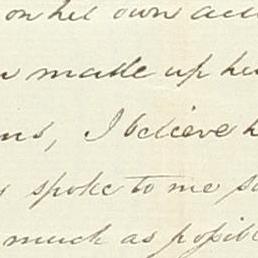 on her own acc
made up he
I believe h
spoke to me so
much as possib